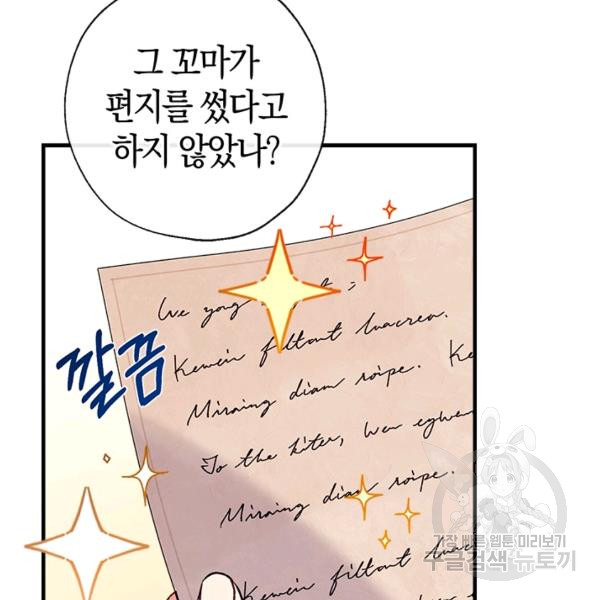 그 꼬마가
편지를 썼다고
하지 않았나?
깔끔
We yong
Kewein filtont luacrea.
Miraing diam roipe. Ke
To the kiter, wen egwen
Miraing diam roipe.
Kewein filtont luac
가장 빠른 웹툰 미리보기
구글검색 뉴토끼